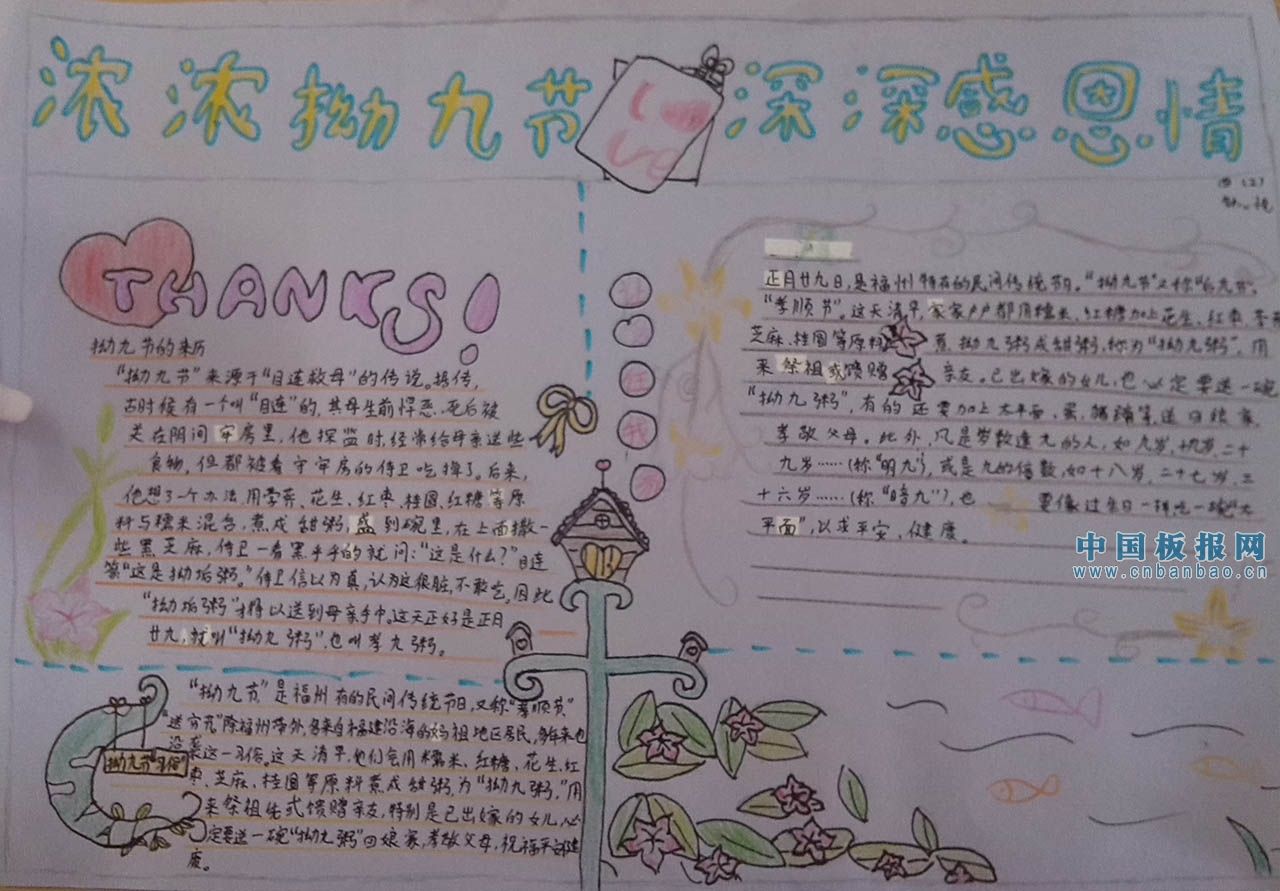 浓浓拗九节 深深感恩情
THANKS!
拗九节的来历
"拗九节"来源于"目连救母"的传说。据传,
古时候有一个叫"目连"的,其母生前悍恶,死后被
关在阴间牢房里,他探监时,经常给母亲送些
食物,但都被看守牢房的侍卫吃掉了。后来,
他想了一个办法用荸荠、花生、红枣、桂圆、红糖等原
料与糯米混合,煮成甜粥,盛到碗里,在上面撒一
些黑芝麻,侍卫一看黑乎乎的就问:"这是什么?"目连
答"这是拗垢粥。"侍卫信以为真,认为这很脏,不敢吃。因此
"拗垢粥"才得以送到母亲手中。这天正好是正月
廿九,就叫"拗九粥".也叫孝九粥。
正月廿九日,是福州特有的民间传统节日。"拗九节"又称"后九节"、
"孝顺节"。这天清早,家家户户都用糯米、红糖加上花生、红枣、荸荠
芝麻、桂圆等原料 煮拗九粥成甜粥,称为"拗九粥",用
来祭祖或馈赠 亲友。已出嫁的女儿,也必定要送一碗
"拗九粥",有的还要加上太平面、蛋、猪蹄等,送回娘家
孝敬父母。此外,凡是岁数逢九的人,如九岁、十九岁、二十
九岁……(称"明九"),或是九的倍数,如十八岁,二十七岁,三
十六岁……(称"暗九"),也 要像过生日一样吃一碗"太
平面",以求平安、健康。
中国板报网
www.cnbanbao.cn
"拗九节"是福州有的民间传统节日,又称"孝顺节"
"送穷节"除福州带外,各来自福建沿海的妈祖地区居民,多年来也
沿袭这一习俗。这天清早,他们会用糯米、红糖、花生、红
枣、芝麻、桂圆等原料煮成甜粥,为"拗九粥",用
来祭祖先或馈赠亲友,特别是已出嫁的女儿,必
定要送一碗"拗九粥"回娘家,孝敬父母,祝福平安健
康。
拗九节习俗